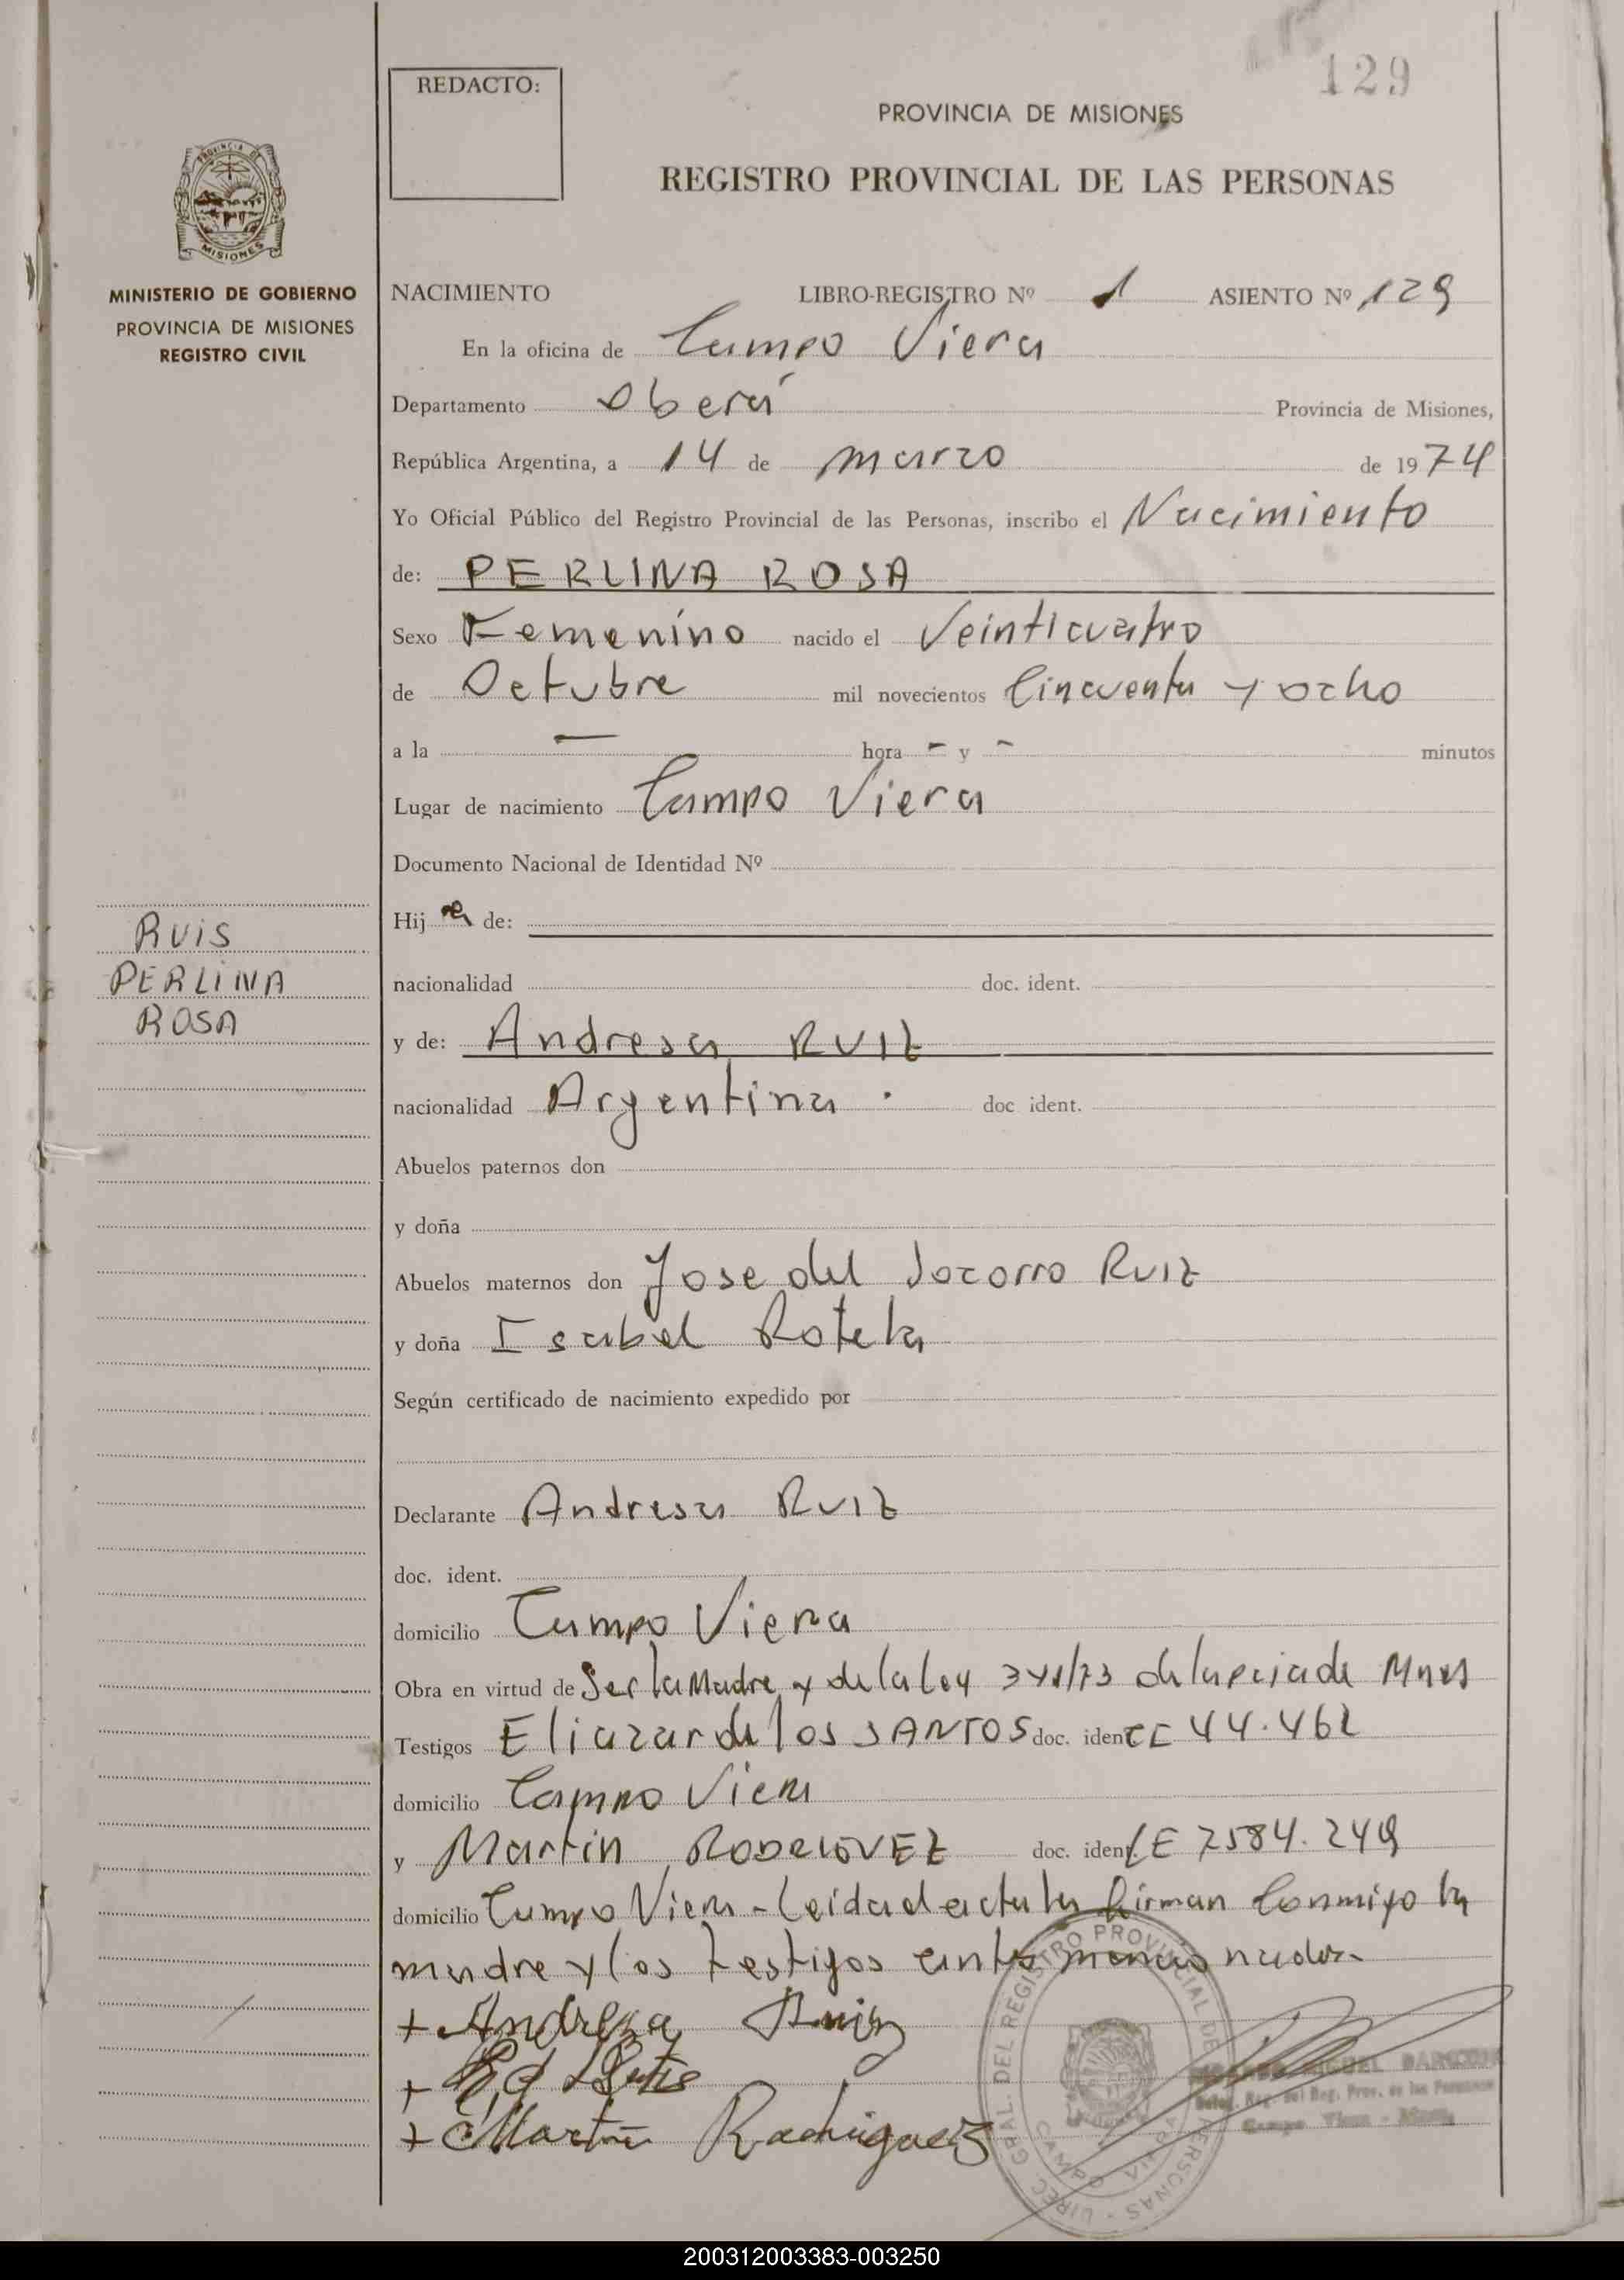 129
REDACTO:
PROVINCIA DE MISIONES
REGISTRO PROVINCIAL DE LAS PERSONAS
PROVINCIA DE
MISIONES
MINISTERIO DE GOBIERNO
PROVINCIA DE MISIONES
REGISTRO CIVIL
NACIMIENTO LIBRO-REGISTRO Nº 1 ASIENTO Nº 129
En la oficina de Campo Viera
Departamento Oberá Provincia de Misiones,
República Argentina, a 14 de marzo de 1974
Yo Oficial Público del Registro Provincial de las Personas, inscribo el Nacimiento
de: PERLINA ROSA
Sexo Femenino nacido el Veinticuatro
de Octubre mil novecientos Cincuenta y ocho
a la — hora - y - minutos
Lugar de nacimiento Campo Viera
Documento Nacional de Identidad Nº
Hija de:
RUIS
PERLINA
ROSA
nacionalidad doc. ident.
y de: Andresa RUIZ
nacionalidad Argentina. doc ident.
Abuelos paternos don
y doña
Abuelos maternos don Jose del Socorro Ruiz
y doña Isabel Rotela
Según certificado de nacimiento expedido por
Declarante Andresa Ruiz
doc. ident.
domicilio Campo Viera
Obra en virtud de Ser la Madre y de la Ley /73 de la pcia de Mnes
Testigos Eliazar de los SANTOS doc. ident. CE 44.462
domicilio Campo Viera
y Martin RODRIGUEZ doc. ident. LE 7584.249
domicilio Campo Viera - Leida el acta la firman Conmigo la
madre y los testigos antes mencionados-
+ Andreza Ruiz
+
+ Martin Rodriguez
DIREC. GRAL. DEL REGISTRO PROVINCIAL DE PERSONAS
CAMPO VIERA
MIGUEL
Deleg. Reg. del Reg. Prov. de las Personas
Campo Viera - Mnes.
200312003383-003250